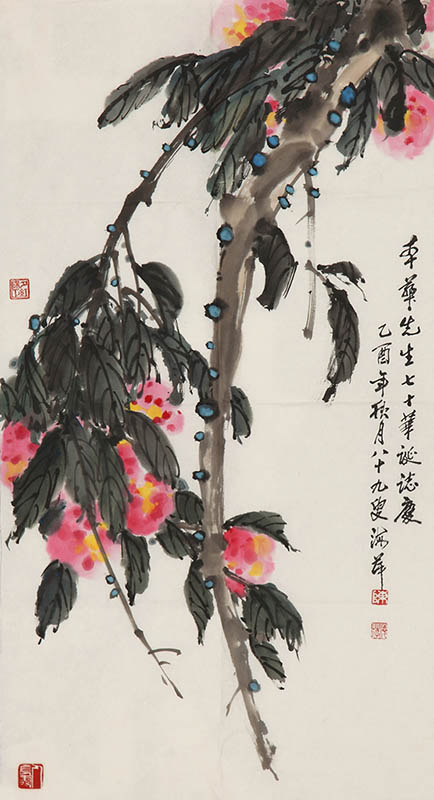 本华先生七十華誕誌慶
乙酉年秋月八十九叟海萍